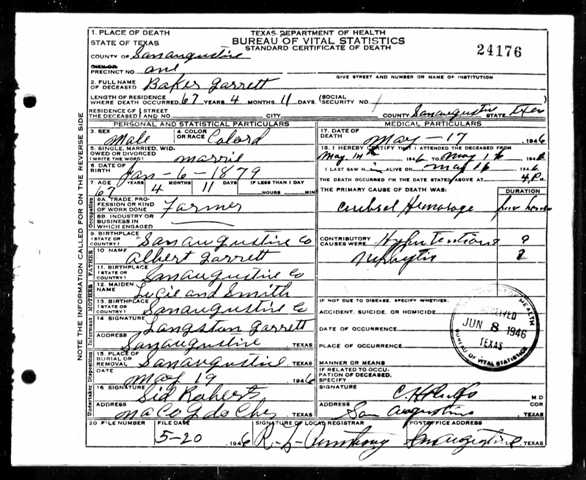 TEXAS DEPARTMENT OF HEALTH
BUREAU OF VITAL STATISTICS
STANDARD CERTIFICATE OF DEATH
24176
1. PLACE OF DEATH
STATE OF TEXAS
COUNTY OF San augustine
PRECINCT NO. one
GIVE STREET AND NUMBER OR NAME OF INSTITUTION
2. FULL NAME OF DECEASED Baker Garrett
LENGTH OF RESIDENCE WHERE DEATH OCCURRED 67 YEARS 4 MONTHS 11 DAYS (SOCIAL SECURITY NO.
RESIDENCE OF THE DECEASED STREET AND NO. CITY COUNTY San augustine STATE Texas
PERSONAL AND STATISTICAL PARTICULARS
3. SEX Male
4. COLOR OR RACE Colord
5. SINGLE, MARRIED, WIDOWED OR DIVORCED (WRITE THE WORD) marrie
6. DATE OF BIRTH Jan-6-1879
7. AGE 67 YEARS 4 MONTHS 11 DAYS IF LESS THAN 1 DAY HOURS MIN
8A. TRADE, PROFESSION OR KIND OF WORK DONE Farmer
8B. INDUSTRY OR BUSINESS IN WHICH ENGAGED
9. BIRTHPLACE (STATE OR COUNTRY) San augustine Co
10. NAME Albert Garrett
11. BIRTHPLACE (STATE OR COUNTRY) San augustine Co
12. MAIDEN NAME Smith
13. BIRTHPLACE (STATE OR COUNTRY) San augustine Co
14. SIGNATURE Langston Garrett
ADDRESS San augustine TEXAS
15. PLACE OF BURIAL OR REMOVAL San augustine TEXAS
DATE May 19 1946
16. SIGNATURE Sid Roberts
ADDRESS TEXAS
MEDICAL PARTICULARS
17. DATE OF DEATH May-17 1946
18. I HEREBY CERTIFY THAT I ATTENDED THE DECEASED FROM
May 14 1946 TO May 16 1946
I LAST SAW H ALIVE ON May 16 1946
THE DEATH OCCURRED ON THE DATE STATED ABOVE AT M.
THE PRIMARY CAUSE OF DEATH WAS: DURATION
Cerebral Hemorage
CONTRIBUTORY CAUSES WERE Hypertention ?
Nephrytis ?
IF NOT DUE TO DISEASE, SPECIFY WHETHER:
ACCIDENT, SUICIDE, OR HOMICIDE
DATE OF OCCURRENCE
PLACE OF OCCURRENCE
MANNER OR MEANS
IF RELATED TO OCCUPATION OF DECEASED, SPECIFY
SIGNATURE M D
ADDRESS San Augustine TEXAS
JUN 8 1946
TEXAS
BUREAU OF VITAL STATISTICS
20 FILE NUMBER
FILE DATE 5-20 1946
SIGNATURE OF LOCAL REGISTRAR R. L. Armstrong
POSTOFFICE ADDRESS San augustine TEXAS
NOTE THE INFORMATION CALLED FOR ON THE REVERSE SIDE